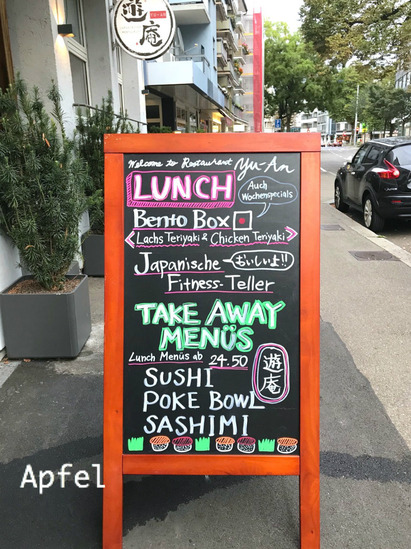 遊
庵
Welcome to Restaurant Yu-An
LUNCH
Auch
Wochenspecials
Bento Box
Lachs Teriyaki & Chicken Teriyaki
Japanische
おいしいよ!!
Fitness-Teller
TAKE AWAY
MENÜS
Lunch Menüs ab 24.50
遊
庵
SUSHI
POKE BOWL
SASHIMI
Apfel